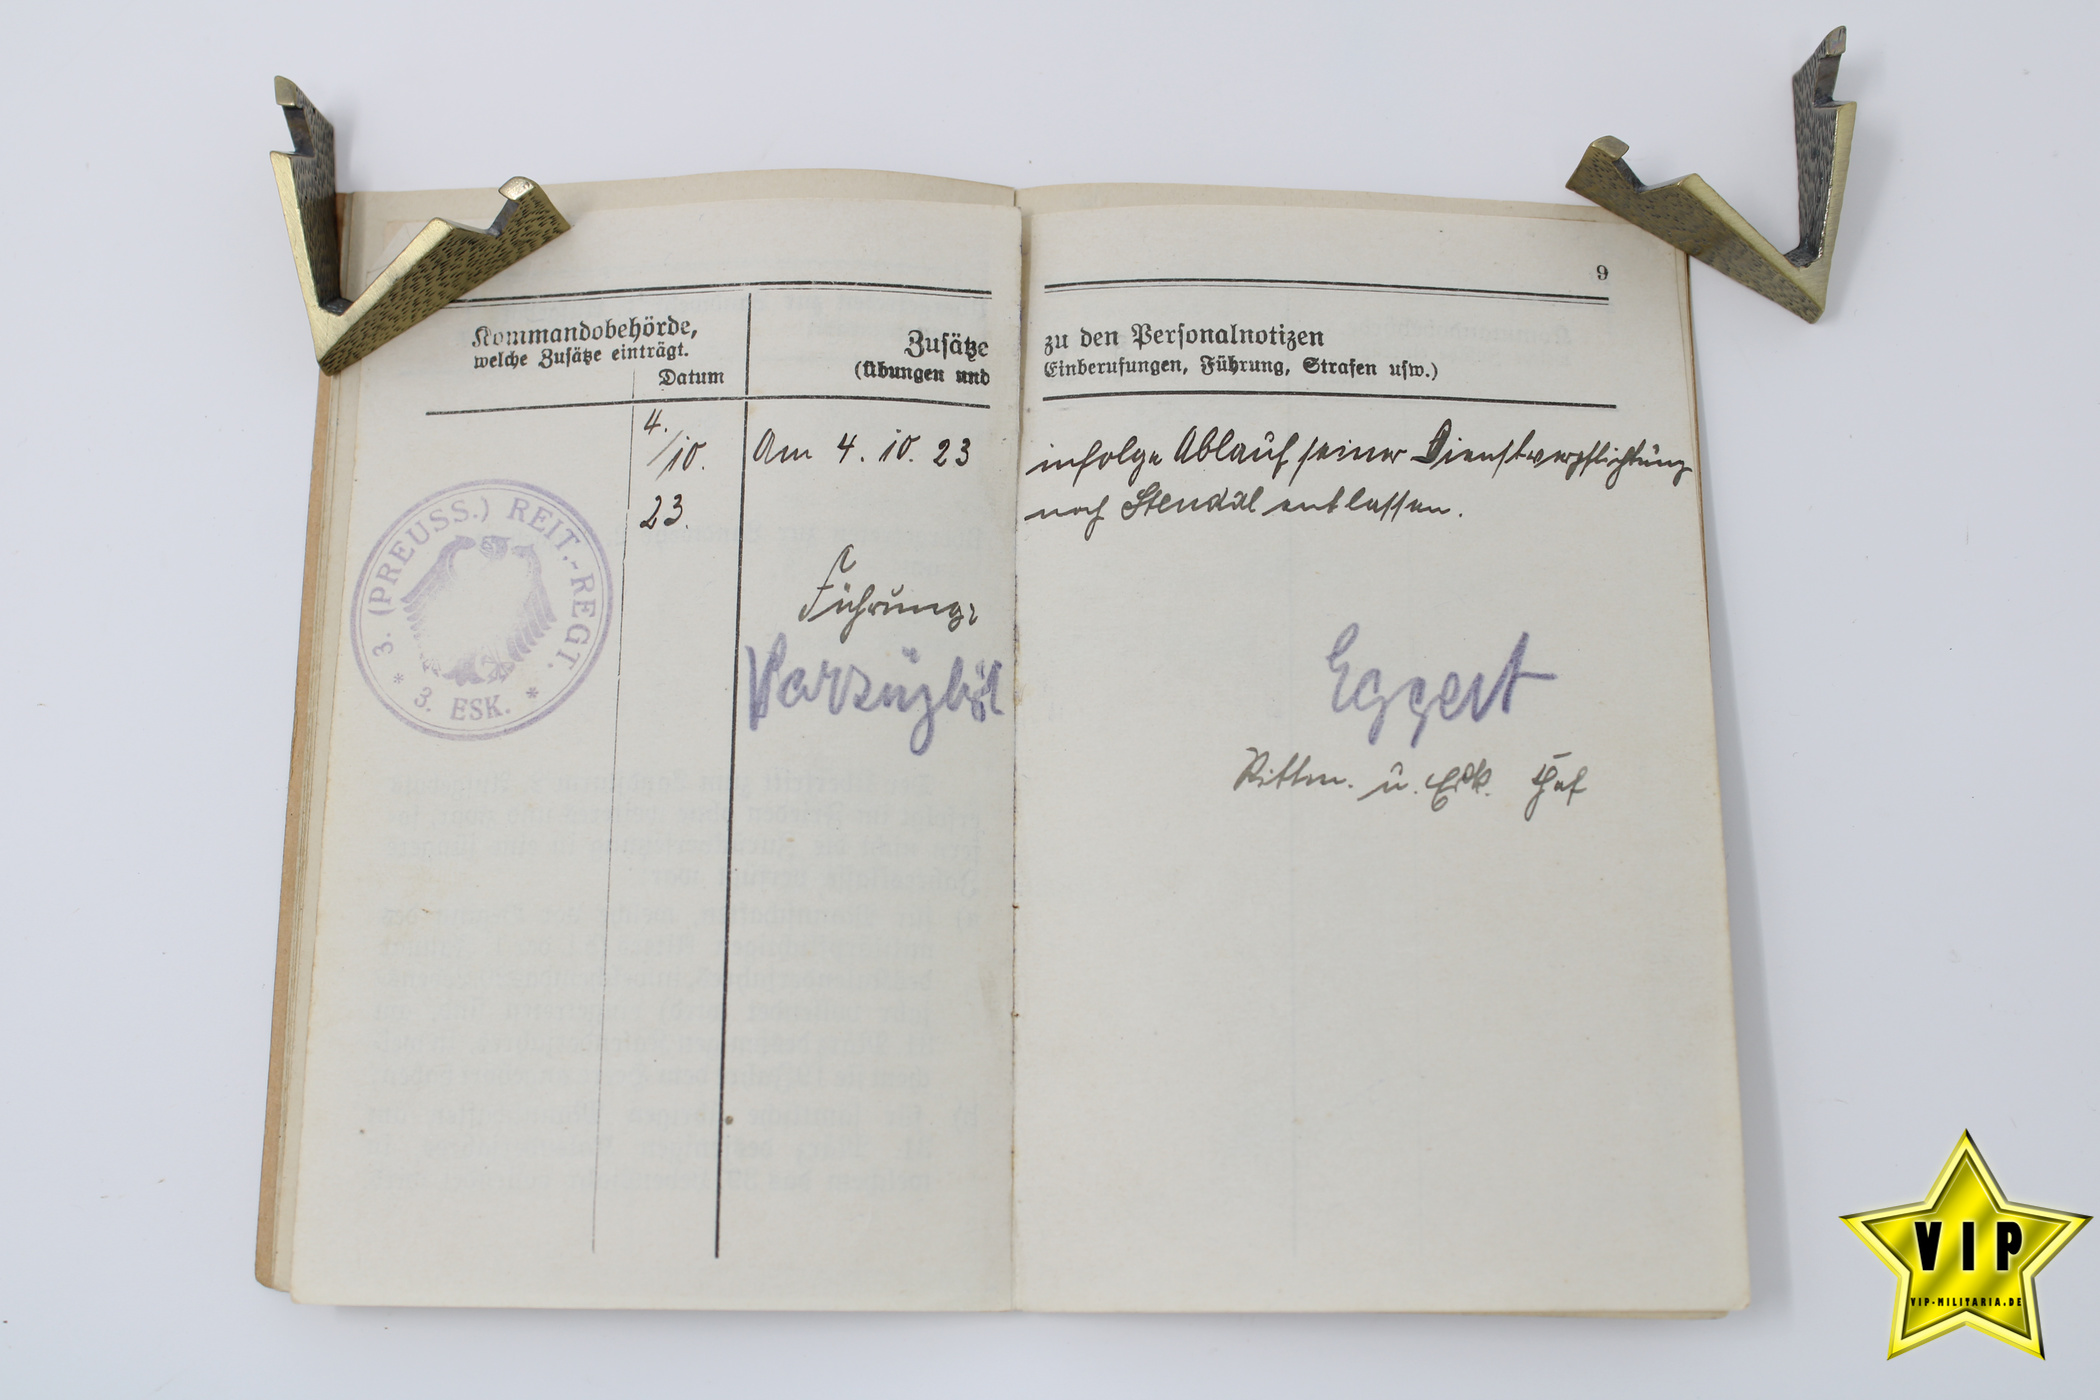 9
Kommandobehörde,
welche Zusätze einträgt.
Datum
Zusätze
(Übungen und
zu den Personalnotizen
Einberufungen, Führung, Strafen usw.)
4.
/10.
23.
Am 4. 10. 23
infolge Ablauf seiner Dienstverpflichtung
nach Stendal entlassen.
3. (PREUSS.) REIT.-REGT.
* 3. ESK. *
Führung:
Vorzüglich
Eggert
Rittm. u. Esk. Chef
VIP
VIP-MILITARIA.DE